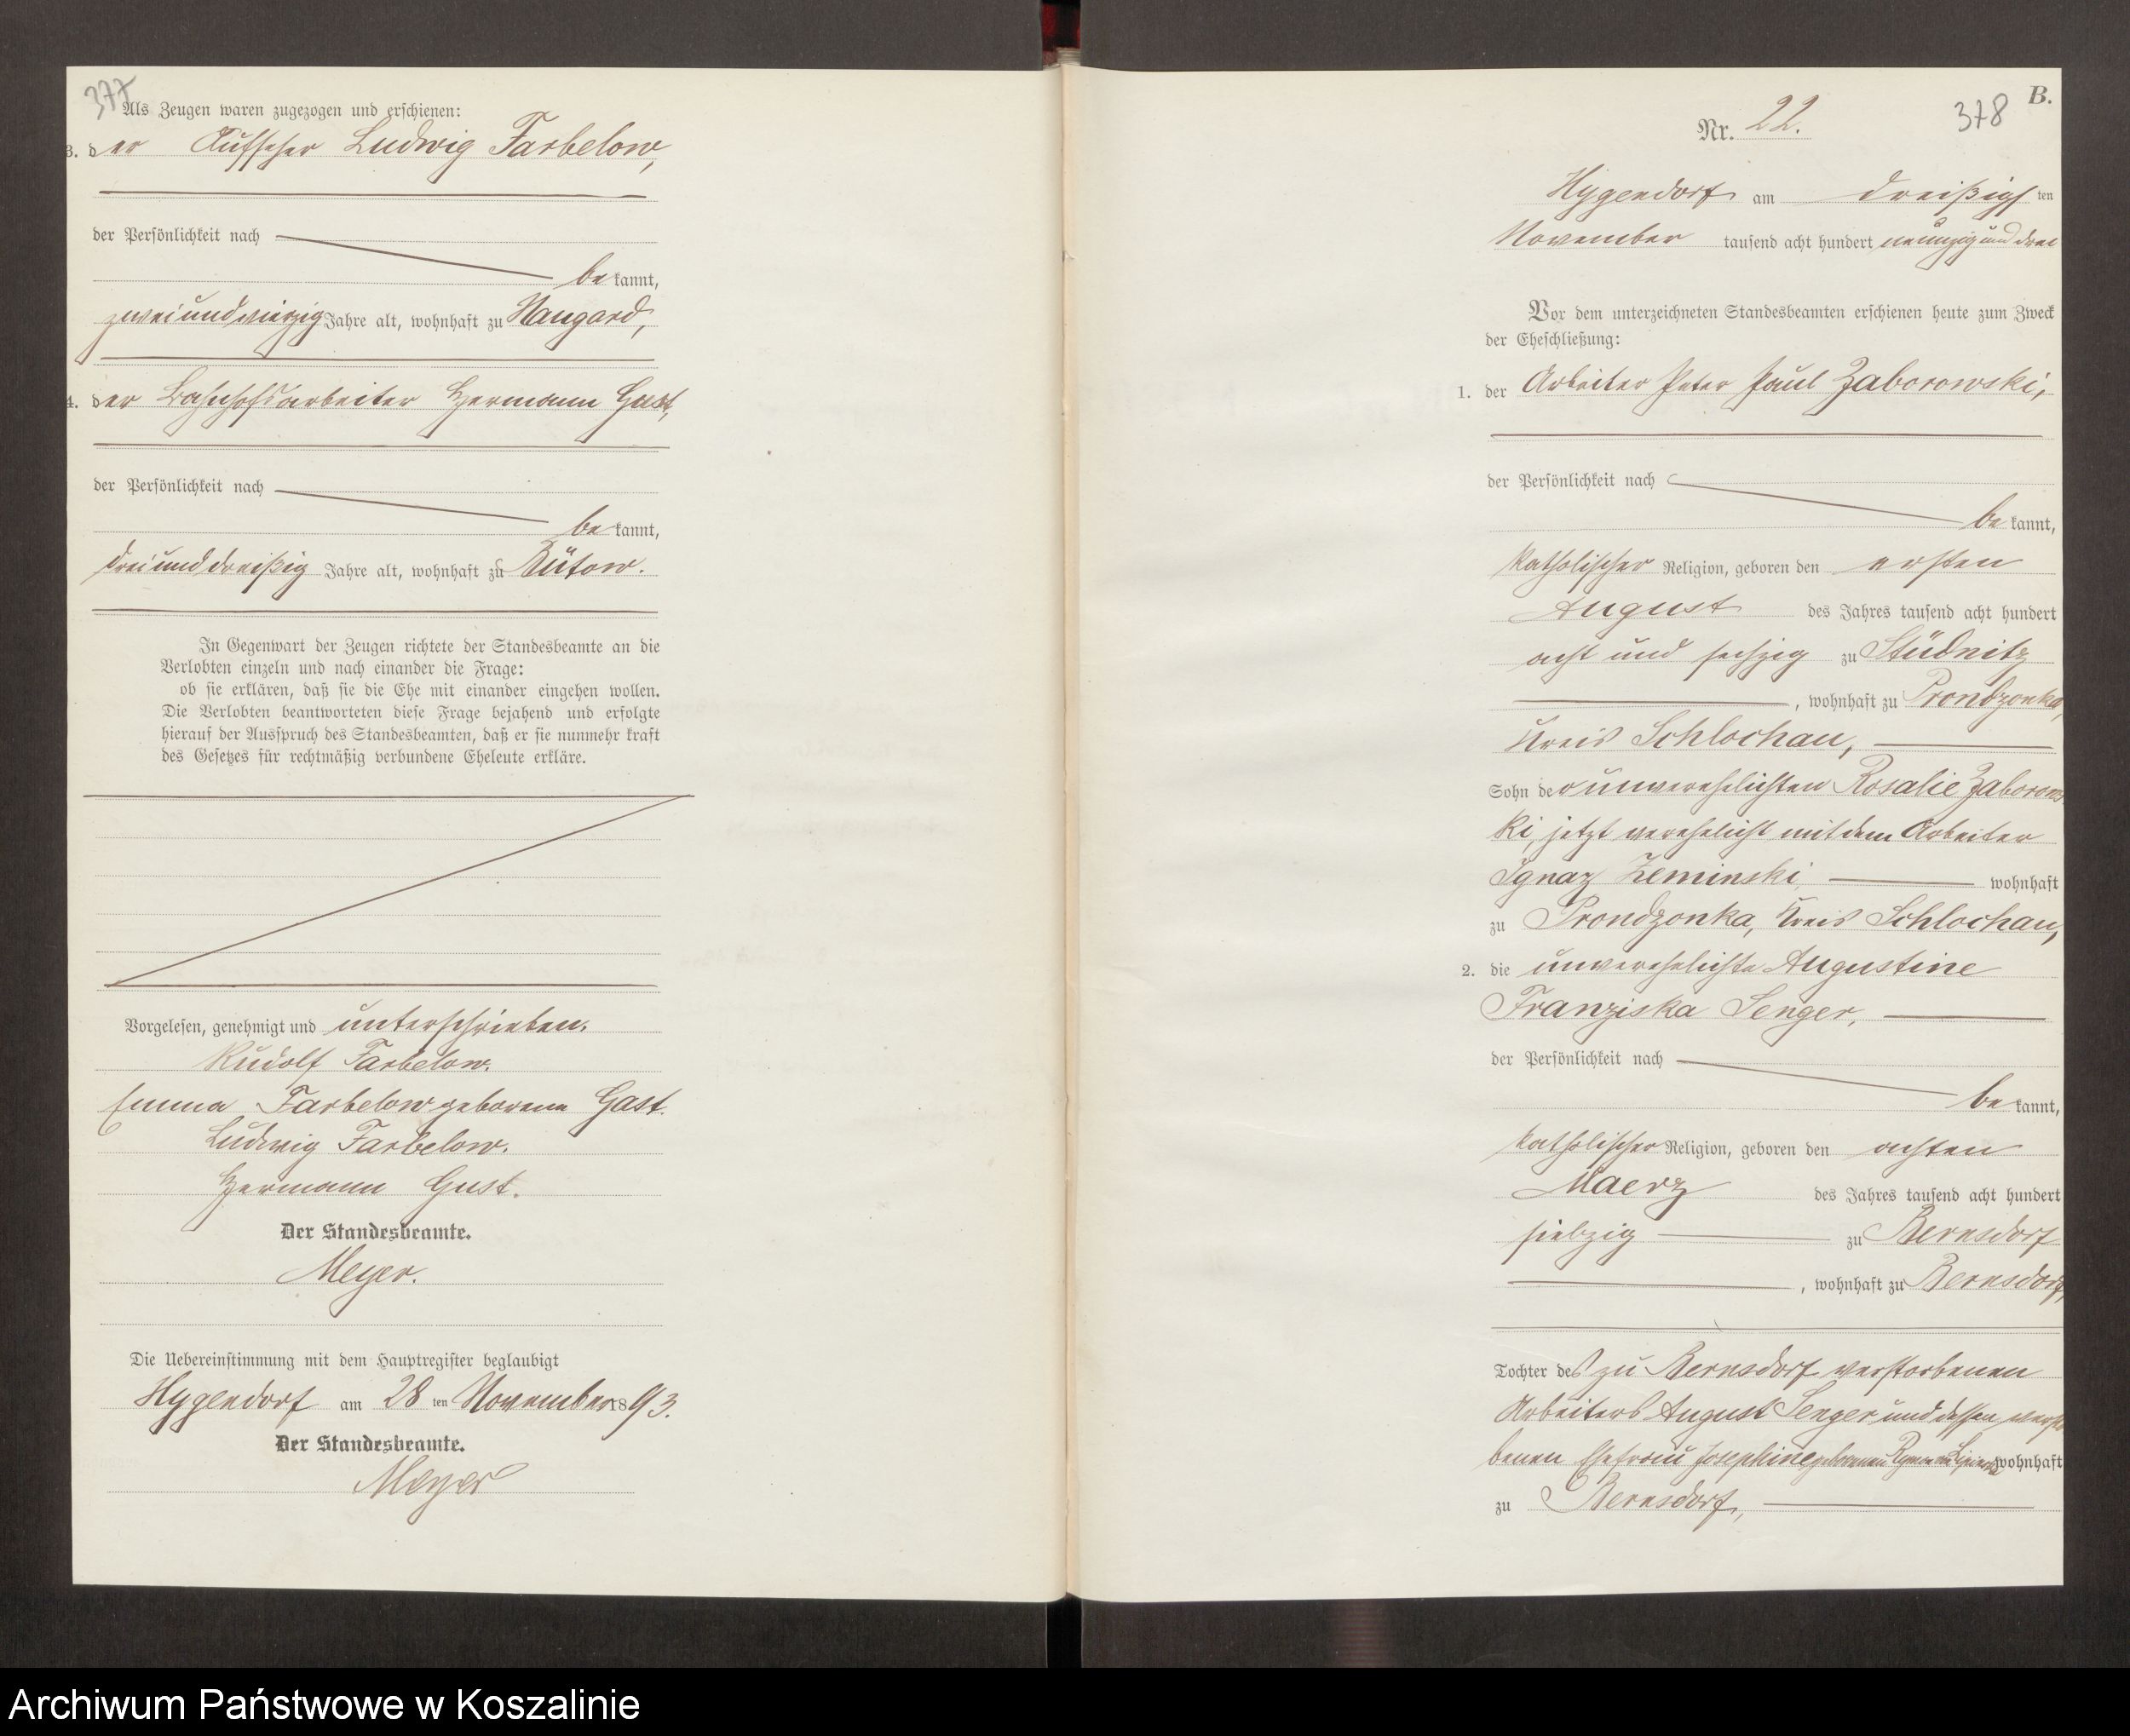 377
Als Zeugen waren zugezogen und erschienen:
3. der Aufseher Ludwig Farbelow,
der Persönlichkeit nach
bekannt,
zweiundvierzig Jahre alt, wohnhaft zu Naugard,
4. der Bahnhofsarbeiter Hermann Gust,
der Persönlichkeit nach
bekannt,
dreiunddreißig Jahre alt, wohnhaft zu Bütow.
In Gegenwart der Zeugen richtete der Standesbeamte an die
Verlobten einzeln und nach einander die Frage:
ob sie erklären, daß sie die Ehe mit einander eingehen wollen.
Die Verlobten beantworteten diese Frage bejahend und erfolgte
hierauf der Ausspruch des Standesbeamten, daß er sie nunmehr kraft
des Gesetzes für rechtmäßig verbundene Eheleute erkläre.
Vorgelesen, genehmigt und unterschrieben.
Rudolf Farbelow.
Emma Farbelow geborene Gast.
Ludwig Farbelow.
Hermann Gust.
Der Standesbeamte.
Meyer.
Die Uebereinstimmung mit dem Hauptregister beglaubigt
Hygendorf am 28 ten November 1893.
Der Standesbeamte.
Meyer
B.
378
Nr. 22.
Hygendorf am dreißigsten
November tausend acht hundert neunzig und drei
Vor dem unterzeichneten Standesbeamten erschienen heute zum Zweck
der Eheschließung:
1. der Arbeiter Peter Paul Zaborowski,
der Persönlichkeit nach
bekannt,
katholischer Religion, geboren den ersten
August des Jahres tausend acht hundert
acht und sechzig zu Stüdnitz
, wohnhaft zu Prondzonka,
Kreis Schlochau,
Sohn der unverehelichten Rosalie Zaborows
ki, jetzt verehelicht mit dem Arbeiter
Ignaz Zeminski, wohnhaft
zu Prondzonka, Kreis Schlochau,
2. die unverehelichte Augustine
Franziska Senger,
der Persönlichkeit nach
bekannt,
katholischer Religion, geboren den achten
Maerz des Jahres tausend acht hundert
siebzig zu Bernsdorf
, wohnhaft zu Bernsdorf,
Tochter des zu Bernsdorf verstorbenen
Arbeiters August Senger und dessen verstor
benen Ehefrau Josephine geborenen wohnhaft
zu Bernsdorf,
Archiwum Państwowe w Koszalinie